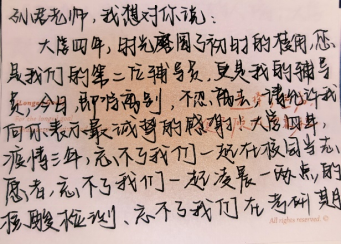 老师，我想对你说：
大学四年，时光磨圆了初时的棱角，您
是我们的第二位辅导员，更是我的辅导
员，今日，即将离别，不忍离去，请允许我
向你表示最诚挚的感谢。大学四年，
疫情三年，忘不了我们一起在校园当志
愿者，忘不了我们一起凌晨一两点的
核酸检测，忘不了我们在考研期
All rights reserved. ©